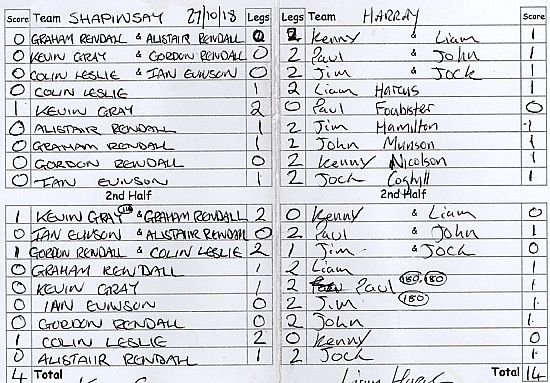 Score Team SHAPINSAY 27/10/18 Legs Legs Team HARRAY Score
0 GRAHAM RENDALL & ALISTAIR RENDALL 0 2 Kenny & Liam 1
0 KEVIN GRAY & GORDON RENDALL 0 2 Paul & John 1
0 COLIN LESLIE & IAN EUNSON 0 2 Jim & Jock 1
0 COLIN LESLIE 1 2 Liam Harcus 1
1 KEVIN GRAY 2 0 Paul Foubister 0
0 ALISTAIR RENDALL 1 2 Jim Hamilton 1
0 GRAHAM RENDALL 1 2 John Munson 1
0 GORDON RENDALL 0 2 Kenny Nicolson 1
0 IAN EUNSON 1 2 Jock Coghyll 1
2nd Half 2nd Half
1 KEVIN GRAY & GRAHAM RENDALL 2 0 Kenny & Liam 0
0 IAN EUNSON & ALISTAIR RENDALL 0 2 Paul & John 1
1 GORDON RENDALL & COLIN LESLIE 2 1 Jim & Jock 0
0 GRAHAM RENDALL 1 2 Liam 1
0 KEVIN GRAY 1 2 Paul 180, 180 1
0 IAN EUNSON 0 2 Jim 180 1
0 GORDON RENDALL 0 2 John 1
1 COLIN LESLIE 2 0 Kenny 0
0 ALISTAIR RENDALL 1 2 Jock 1
4 Total Total 14